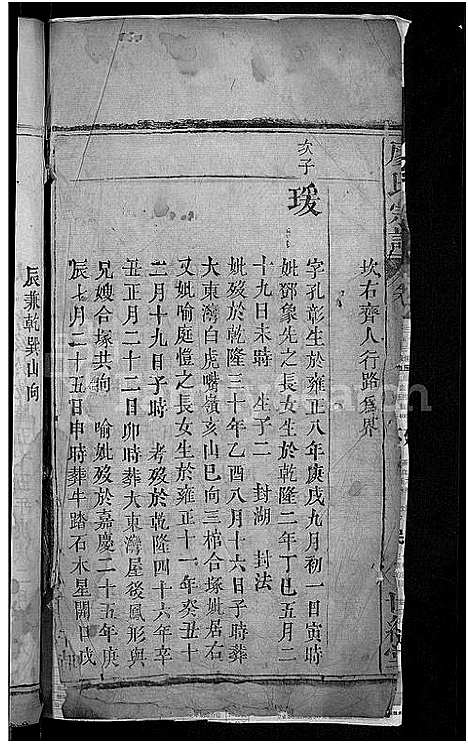 廖氏宗譜
坎右齊人行路爲界
次子
瑗
字孔彰生於雍正八年庚戌九月初一日寅時
妣鄧象先之長女生於乾隆二年丁巳五月二
十九日未時　生子二　封湖　封法
妣歿於乾隆三十年乙酉八月十六日子時葬
大東灣白虎嘴嶺亥山巳向三棺合塚妣居右
又妣喻庭愷之長女生於雍正十一年癸丑十
二月十九日子時　考歿於乾隆四十六年辛
丑正月二十二日卯時葬大東灣屋後鳳形與
兄嫂合塚共向　喻妣歿於嘉慶二十五年庚
辰七月二十五日申時葬牛踏石木星開口戌
辰兼乾巽山向